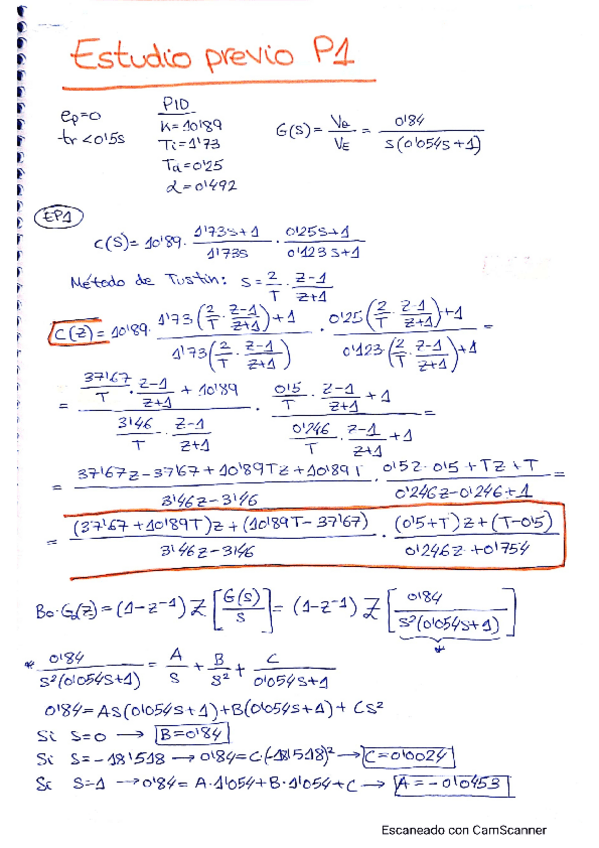 Estudio previo P1
ep=0
tr<0'5s
PID
K=10'89
Ti=1'73
Td=0'25
α=0'492
G(S) = Vθ/VE = 0'84/(s(0'054s+1))
EP1
C(S)=10'89 · (1'73s+1)/(1'73s) · (0'25s+1)/(0'123s+1)
Método de Tustin: s = 2/T · (z-1)/(z+1)
C(z) = 10'89 · (1'73(2/T · (z-1)/(z+1))+1)/(1'73(2/T · (z-1)/(z+1))) · (0'25(2/T · (z-1)/(z+1))+1)/(0'123(2/T · (z-1)/(z+1))+1) =
= (37'67/T · (z-1)/(z+1) + 10'89)/(3'46/T · (z-1)/(z+1)) · (0'5/T · (z-1)/(z+1) + 1)/(0'246/T · (z-1)/(z+1) + 1) =
= (37'67z-37'67+10'89Tz+10'89T)/(3'46z-3'46) · (0'5z-0'5+Tz+T)/(0'246z-0'246+1) =
= ((37'67+10'89T)z+(10'89T-37'67))/(3'46z-3'46) · ((0'5+T)z+(T-0'5))/(0'246z+0'754)
Bo·G(z)=(1-z⁻¹) Z[G(s)/s] = (1-z⁻¹) Z[0'84/(s²(0'054s+1))]
*
* 0'84/(s²(0'054s+1)) = A/s + B/s² + C/(0'054s+1)
0'84=As(0'054s+1)+B(0'054s+1)+Cs²
Si s=0 → B=0'84
Si s=-18'518 → 0'84=C·(-18'518)² → C=0'0024
Si s=1 → 0'84=A·1'054+B·1'054+C → A=-0'0453
Escaneado con CamScanner